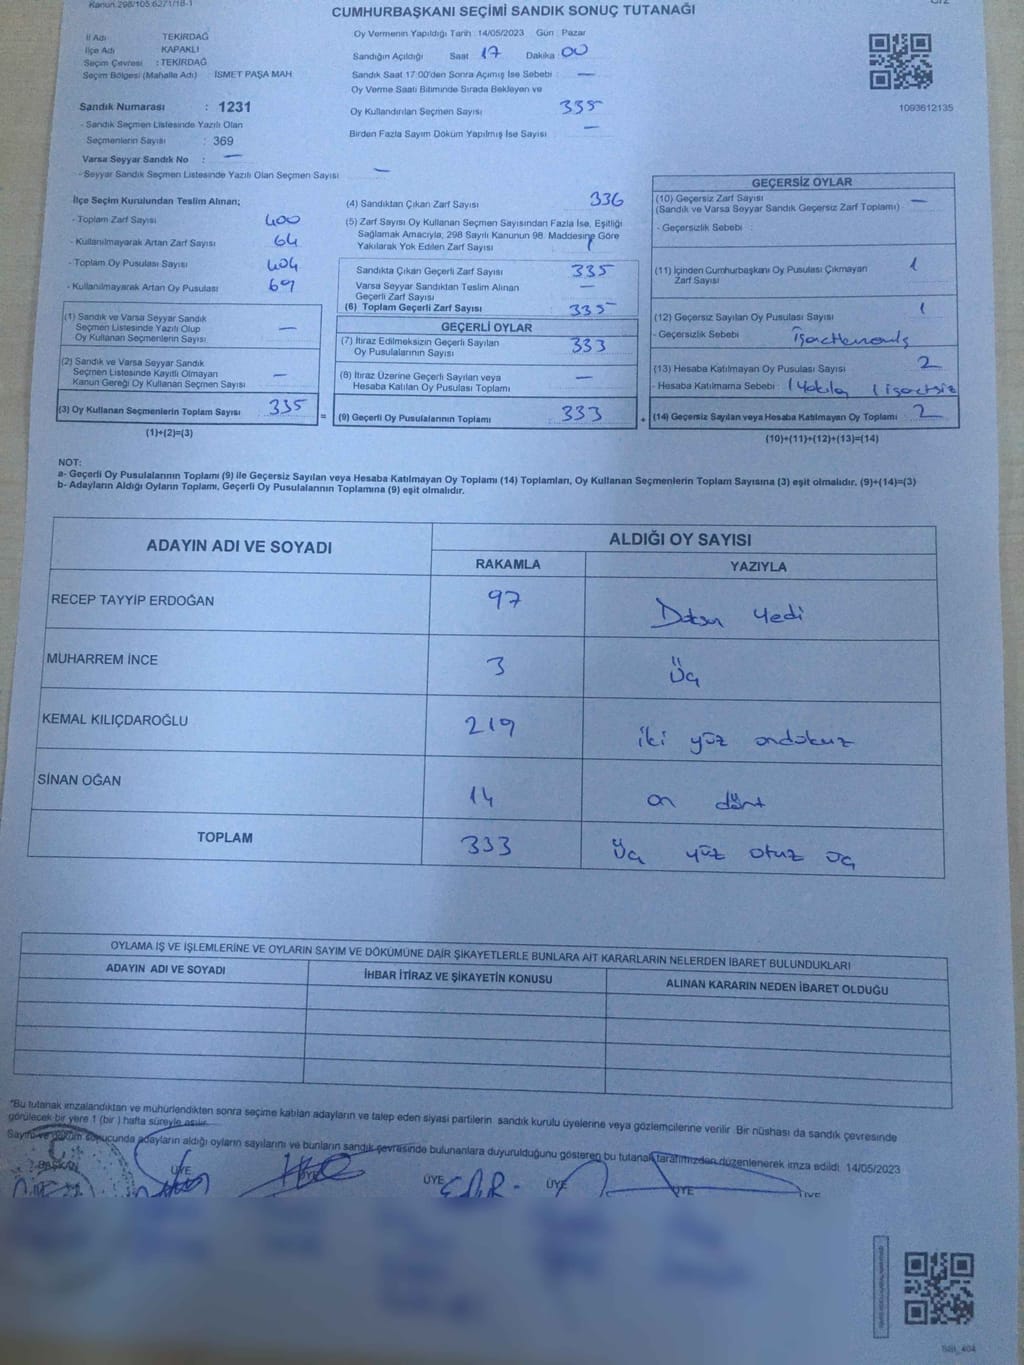 Kanun.298/105.6271/18-1
CUMHURBAŞKANI SEÇİMİ SANDIK SONUÇ TUTANAĞI
İl Adı TEKİRDAĞ
İlçe Adı KAPAKLI
Seçim Çevresi : TEKİRDAĞ
Seçim Bölgesi (Mahalle Adı) İSMET PAŞA MAH
Oy Vermenin Yapıldığı Tarih : 14/05/2023 Gün : Pazar
Sandığın Açıldığı Saat 17 Dakika 00
Sandık Saat 17:00'den Sonra Açımış İse Sebebi : —
Oy Verme Saati Bitiminde Sırada Bekleyen ve
Oy Kullandırılan Seçmen Sayısı 335
Birden Fazla Sayım Döküm Yapılmış İse Sayısı —
1093612135
Sandık Numarası : 1231
- Sandık Seçmen Listesinde Yazılı Olan
Seçmenlerin Sayısı : 369
Varsa Seyyar Sandık No : —
- Seyyar Sandık Seçmen Listesinde Yazılı Olan Seçmen Sayısı —
İlçe Seçim Kurulundan Teslim Alınan;
- Toplam Zarf Sayısı 400
- Kullanılmayarak Artan Zarf Sayısı 64
- Toplam Oy Pusulası Sayısı 404
- Kullanılmayarak Artan Oy Pusulası 69
(1) Sandık ve Varsa Seyyar Sandık
Seçmen Listesinde Yazılı Olup
Oy Kullanan Seçmenlerin Sayısı —
(2) Sandık ve Varsa Seyyar Sandık
Seçmen Listesinde Kayıtlı Olmayan
Kanun Gereği Oy Kullanan Seçmen Sayısı —
(3) Oy Kullanan Seçmenlerin Toplam Sayısı 335 =
(1)+(2)=(3)
(4) Sandıktan Çıkan Zarf Sayısı 336
(5) Zarf Sayısı Oy Kullanan Seçmen Sayısından Fazla İse, Eşitliği
Sağlamak Amacıyla, 298 Sayılı Kanunun 98. Maddesine Göre
Yakılarak Yok Edilen Zarf Sayısı 1
Sandıkta Çıkan Geçerli Zarf Sayısı 335
Varsa Seyyar Sandıktan Teslim Alınan
Geçerli Zarf Sayısı —
(6) Toplam Geçerli Zarf Sayısı 335
GEÇERLİ OYLAR
(7) İtiraz Edilmeksizin Geçerli Sayılan
Oy Pusulalarının Sayısı 333
(8) İtiraz Üzerine Geçerli Sayılan veya
Hesaba Katılan Oy Pusulası Toplamı —
(9) Geçerli Oy Pusulalarının Toplamı 333 +
GEÇERSİZ OYLAR
(10) Geçersiz Zarf Sayısı —
(Sandık ve Varsa Seyyar Sandık Geçersiz Zarf Toplamı)
- Geçersizlik Sebebi :
(11) İçinden Cumhurbaşkanı Oy Pusulası Çıkmayan
Zarf Sayısı 1
(12) Geçersiz Sayılan Oy Pusulası Sayısı 1
- Geçersizlik Sebebi
(13) Hesaba Katılmayan Oy Pusulası Sayısı 2
- Hesaba Katılmama Sebebi : 1 1 işaretsiz
(14) Geçersiz Sayılan veya Hesaba Katılmayan Oy Toplamı 2
(10)+(11)+(12)+(13)=(14)
NOT:
a- Geçerli Oy Pusulalarının Toplamı (9) ile Geçersiz Sayılan veya Hesaba Katılmayan Oy Toplamı (14) Toplamları, Oy Kullanan Seçmenlerin Toplam Sayısına (3) eşit olmalıdır. (9)+(14)=(3)
b- Adayların Aldığı Oyların Toplamı, Geçerli Oy Pusulalarının Toplamına (9) eşit olmalıdır.
ADAYIN ADI VE SOYADI ALDIĞI OY SAYISI
RAKAMLA YAZIYLA
RECEP TAYYİP ERDOĞAN 97 Doksan yedi
MUHARREM İNCE 3 Üç
KEMAL KILIÇDAROĞLU 219 iki yüz ondokuz
SİNAN OĞAN 14 on dört
TOPLAM 333 Üç yüz otuz üç
OYLAMA İŞ VE İŞLEMLERİNE VE OYLARIN SAYIM VE DÖKÜMÜNE DAİR ŞİKAYETLERLE BUNLARA AİT KARARLARIN NELERDEN İBARET BULUNDUKLARI
ADAYIN ADI VE SOYADI İHBAR İTİRAZ VE ŞİKAYETİN KONUSU ALINAN KARARIN NEDEN İBARET OLDUĞU
"Bu tutanak imzalandıktan ve mühürlendikten sonra seçime katılan adayların ve talep eden siyasi partilerin sandık kurulu üyelerine veya gözlemcilerine verilir. Bir nüshası da sandık çevresinde
görülecek bir yere 1 (bir) hafta süreyle asılır.
Sayım ve döküm sonucunda adayların aldığı oyların sayılarını ve bunların sandık çevresinde bulunanlara duyurulduğunu gösteren bu tutanak tarafımızdan düzenlenerek imza edildi. 14/05/2023
BAŞKAN ÜYE ÜYE ÜYE ÜYE ÜYE ÜYE